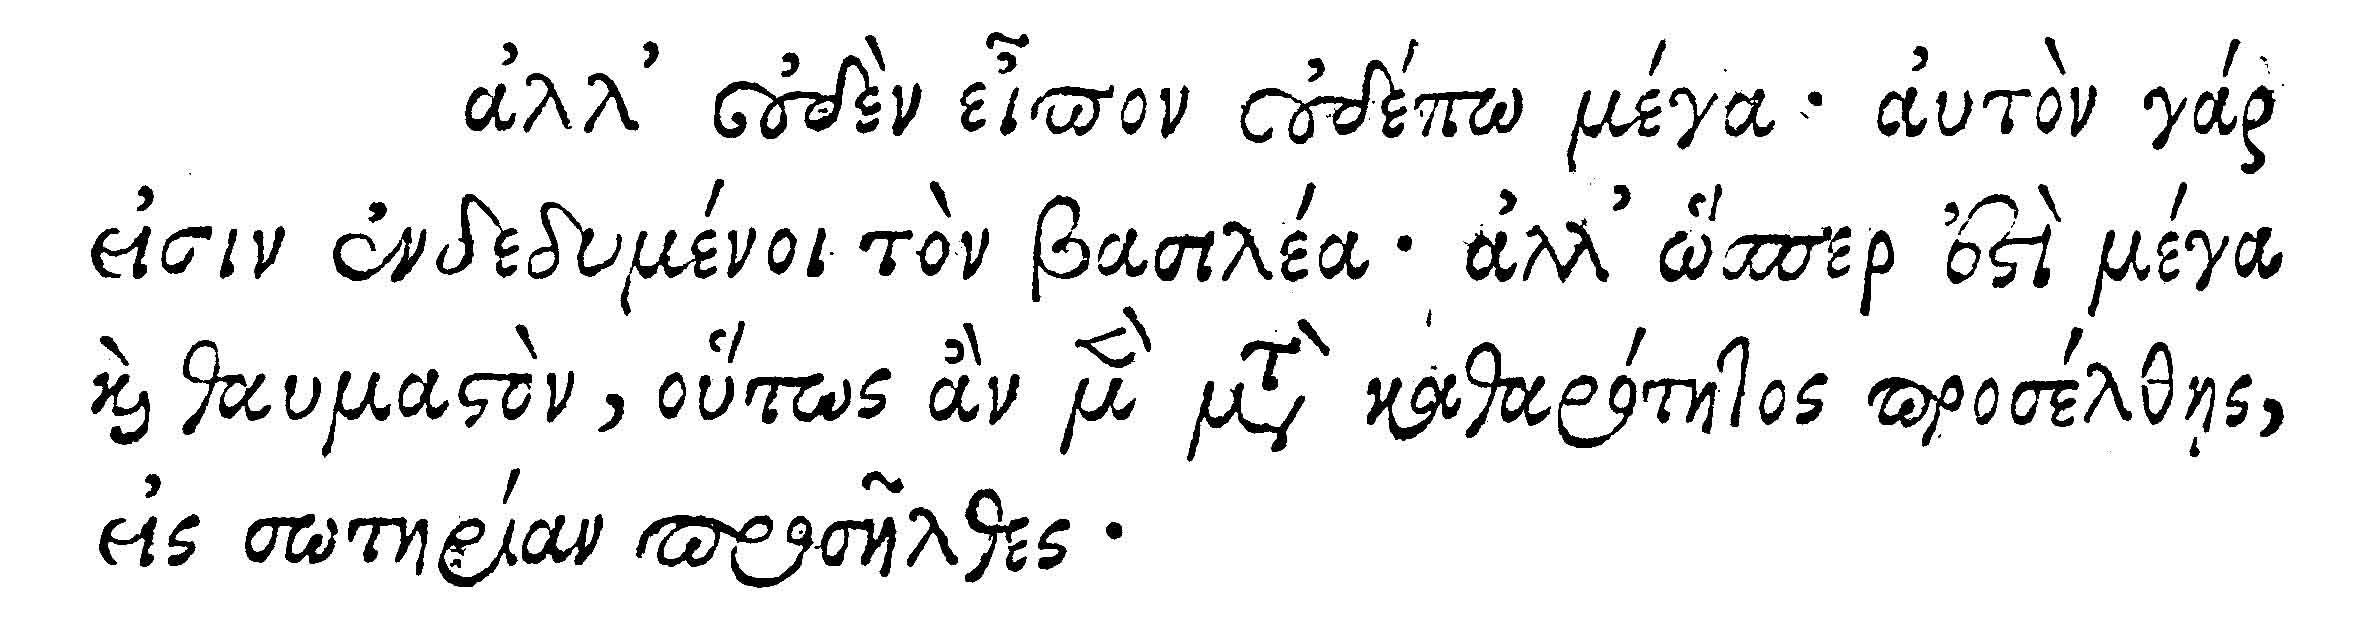 ἀλλ᾽ οὐδὲν εἶπον οὐδέπω μέγα· ἀυτὸν γάρ
εἰσιν ἐνδεδυμένοι τὸν βασιλέα· ἀλλ᾽ ὥσπερ ἐστὶ μέγα
καὶ θαυμαστὸν, οὕτως ἂν μὲν μετὰ καθαρότητος προσέλθῃς,
εἰς σωτηρίαν προσῆλθες.